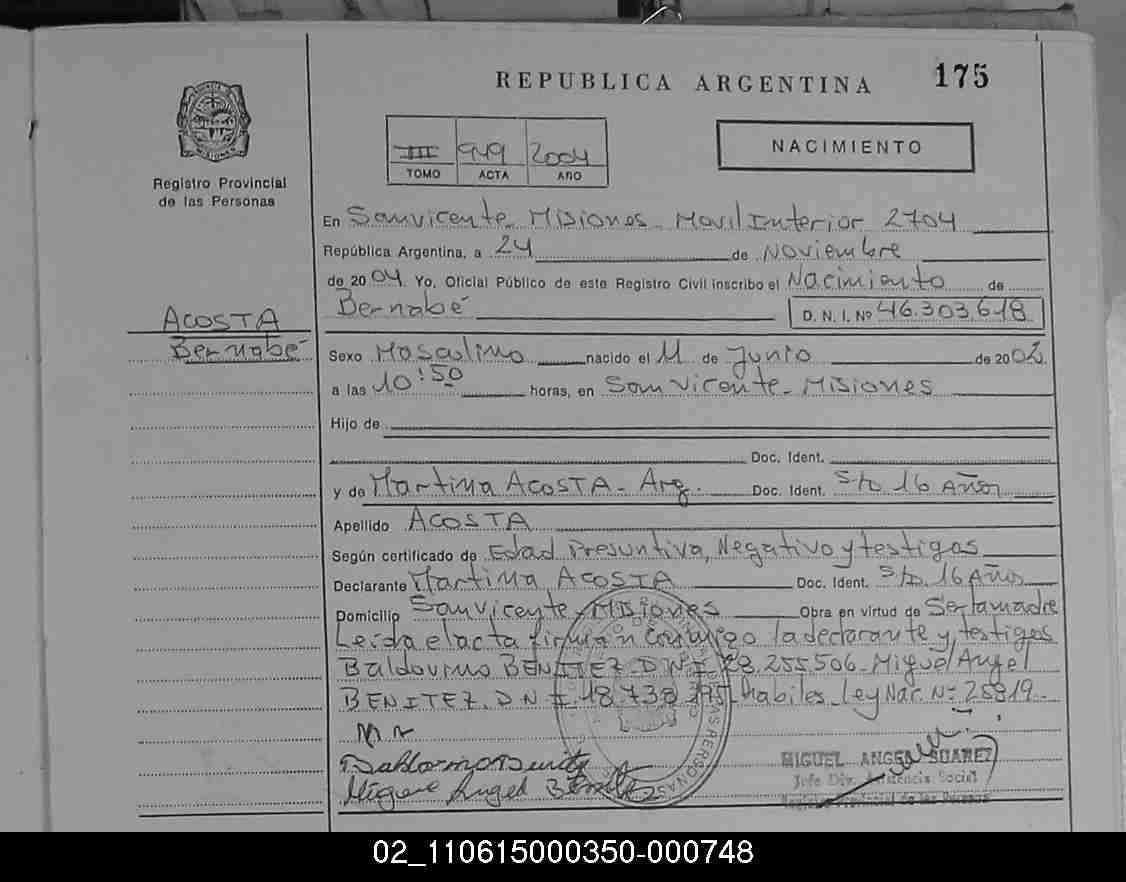 REPUBLICA ARGENTINA 175
III 949 2004
TOMO ACTA AÑO
NACIMIENTO
Registro Provincial
de las Personas
ACOSTA
Bernabé
En San vicente Misiones - Movil Interior 2704
República Argentina, a 24 de Noviembre
de 2004 Yo, Oficial Público de este Registro Civil inscribo el Nacimiento de
Bernabé D. N. I. Nº 46.303.618
Sexo Masculino nacido el 11 de Junio de 2002
a las 10:50 horas, en San vicente - Misiones
Hijo de
Doc. Ident.
y de Martina ACOSTA - Arg. Doc. Ident. S/D 16 Años
Apellido ACOSTA
Según certificado de Edad Presuntiva, Negativo y testigos
Declarante Martina ACOSTA Doc. Ident. S/D. 16 Años
Domicilio San vicente - Misiones Obra en virtud de Ser la madre
Leída el acta firman conmigo la declarante y testigos
Baldovino BENITEZ. D N I 28.255.506 - Miguel Angel
BENITEZ. D N I 18.738.  - habiles - Ley Nac. Nº 25819
Miguel Angel Benitez
MIGUEL ANGEL SUAREZ
Jefe Div. Asistencia Social
Registro Provincial de las Personas
02_110615000350-000748